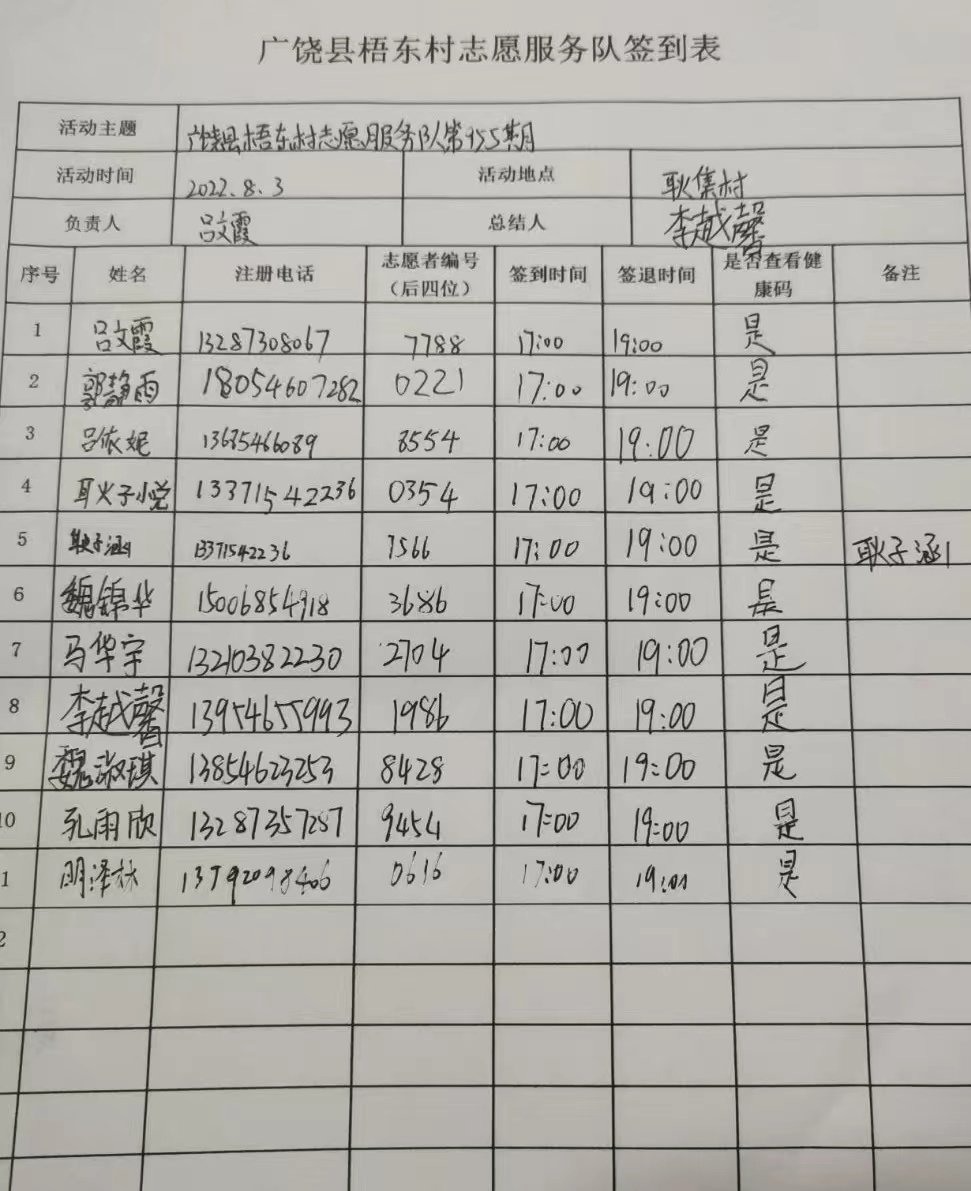 广饶县梧东村志愿服务队签到表
活动主题 广饶县梧东村志愿服务队第955期月
活动时间 2022.8.3 活动地点 耿集村
负责人 吕文霞 总结人 李越馨
序号 姓名 注册电话 志愿者编号（后四位） 签到时间 签退时间 是否查看健康码 备注
1 吕文霞 13287308067 7788 17:00 19:00 是
2 郭静雨 18054607282 0221 17:00 19:00 是
3 吕依妮 13685466089 8554 17:00 19:00 是
4 耿子小悦 13371542236 0354 17:00 19:00 是
5 耿子涵 13371542236 7566 17:00 19:00 是 耿子涵
6 魏锦华 15006854918 3686 17:00 19:00 是
7 马华宇 13210382230 2704 17:00 19:00 是
8 李越馨 13954655993 1986 17:00 19:00 是
9 魏淑琪 13854623253 8428 17:00 19:00 是
10 孔雨欣 13287357287 9454 17:00 19:00 是
1 明泽林 0616 17:00 19:00 是
2